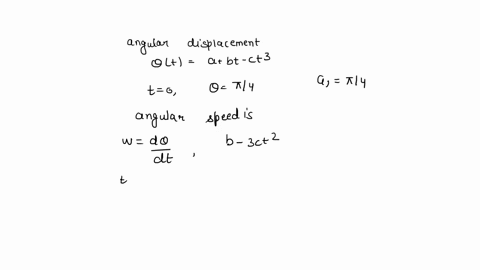 angular displacement
θ(t) = a+bt-ct³
t=0, θ= π/4 a, = π/4
angular speed is
w = dθ/dt , b-3ct²
t